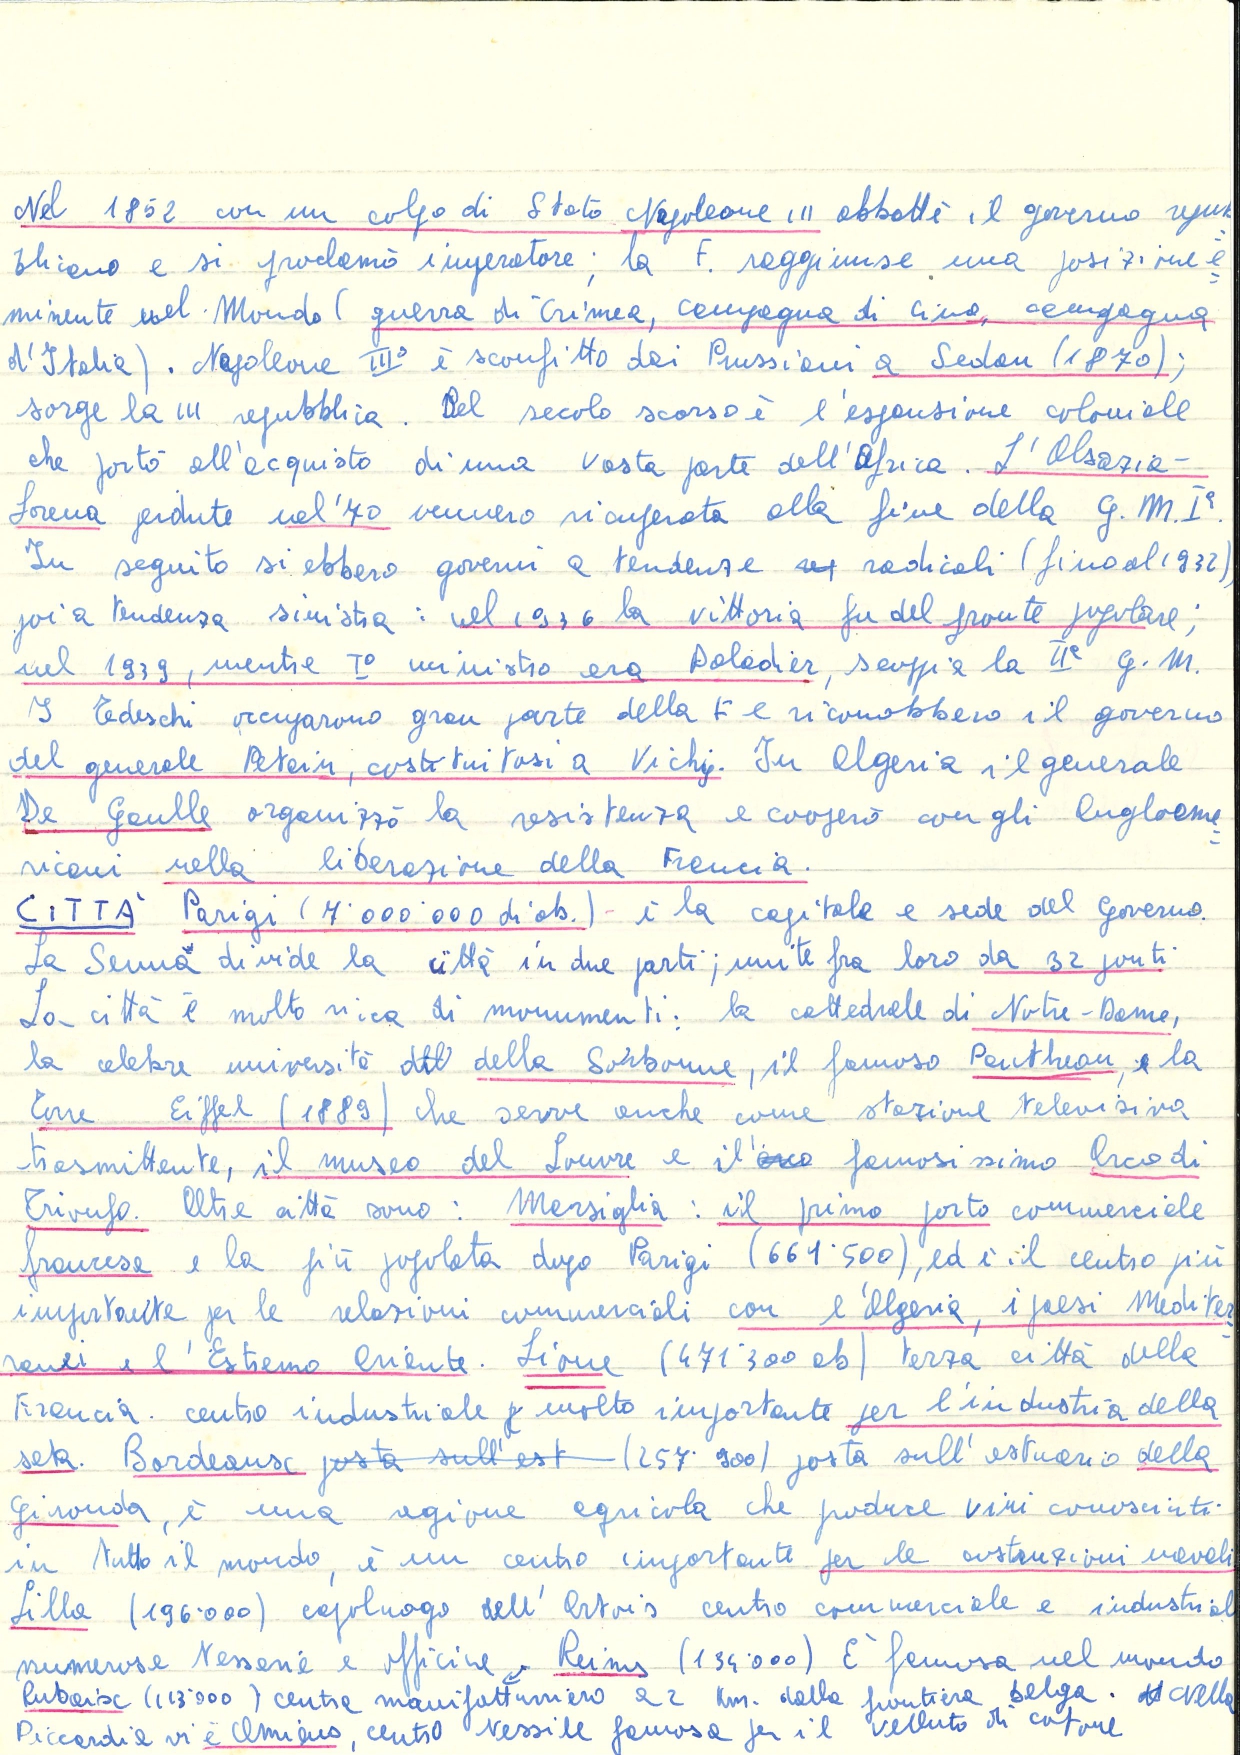 Nel 1852 con un colpo di Stato Napoleone III abbatté il governo repub=
blicano e si proclamò imperatore; la F. raggiunse una posizione e=
minente nel Mondo (guerra di Crimea, campagna di Cina, campagna
d'Italia). Napoleone III° è sconfitto dai Prussiani a Sedan (1870);
sorge la III repubblica. Del secolo scorso è l'espansione coloniale
che portò all'acquisto di una vasta parte dell'Africa. L'Alsazia-
Lorena perdute nel '70 vennero ricuperata alla fine della G.M.Iª.
In seguito si ebbero governi a tendenze radicali (fino al 1932),
poi a tendenza sinistra: nel 1936 la vittoria fu del fronte popolare;
nel 1939, mentre I° ministro era Daladier, scoppia la IIª G.M.
I Tedeschi occuparono gran parte della F e riconobbero il governo
del generale Petain, costituitosi a Vichy. In Algeria il generale
De Gaulle organizzò la resistenza e cooperò con gli Angloame=
ricani nella liberazione della Francia.
CITTÀ Parigi (7.000.000 di ab.) - è la capitale e sede del Governo.
La Senna divide la città in due parti; unite fra loro da 32 ponti
La città è molto ricca di monumenti: la cattedrale di Notre-Dame,
la celebre università della Sorbonne, il famoso Pantheon, e la
Torre Eiffel (1889) che serve anche come stazione televisiva
trasmittente, il museo del Louvre e il famosissimo Arco di
Trionfo. Altre città sono: Marsiglia: il primo porto commerciale
francese e la più popolata dopo Parigi (661.500), ed è il centro più
importante per le relazioni commerciali con l'Algeria, i paesi Mediter=
ranei e l'Estremo Oriente. Lione (471.300 ab) terza città della
Francia. centro industriale molto importante per l'industria della
seta. Bordeausc posta sull'est (257.900) posta sull'estuario della
Gironda, è una regione agricola che produce vini conosciuti
in tutto il mondo, è un centro importante per le costruzioni navali
Lilla (196.000) capoluogo dell'Artois centro commerciale e industrial
numerose Tesserie e officine. Reims (134.000) È famosa nel mondo
Rubaisc (113.000) centro manifatturiero a 2 Km. dalla frontiera belga. Nella
Piccardia vi è Amiens, centro tessile famosa per il velluto di cotone